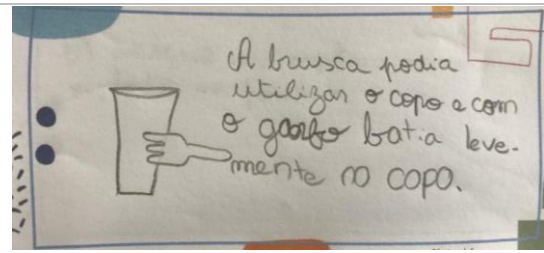 A brusca podia
utilizar o copo e com
o garfo batia leve-
mente no copo.